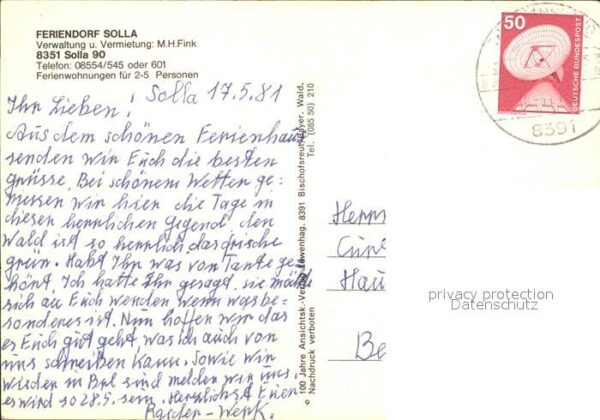 FERIENDORF SOLLA
Verwaltung u. Vermietung: M.H.Fink
8351 Solla 90
Telefon: 08554/545 oder 601
Ferienwohnungen für 2-5 Personen
Solla 17.5.81
Ihr Lieben!
Aus dem schönen Ferienhaus
senden wir Euch die besten
grüsse. Bei schönem Wetter ge=
niessen wir hier die Tage in
dieser herrlichen Gegend den
Wald ist so herrlich das frische
grün. Habt Ihr was von Tante ge=
hört, Ich hatte Ihr gesagt, sie möchte
sich an Euch wenden wenn was be=
sonderes ist. Nun hoffen wir das
es Euch gut geht, was ich auch von
uns schreiben kann. Sowie wir
wieder in Bnl sind melden wir uns.
es wird so 28.5. sein. Herzlichst Euer
100 Jahre Ansichtsk.-Verlag Löwenhag, 8391 Bischofsreut/Bayer. Wald,
Tel. (085 50) 210
Nachdruck verboten
50
DEUTSCHE BUNDESPOST
8391
Herrn
Hau
Be
privacy protection
Datenschutz